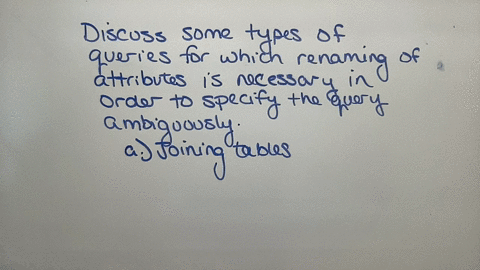 Discuss some types of
queries for which renaming of
attributes is necessary in
order to specify the query
ambiguously.
a.) Joining tables